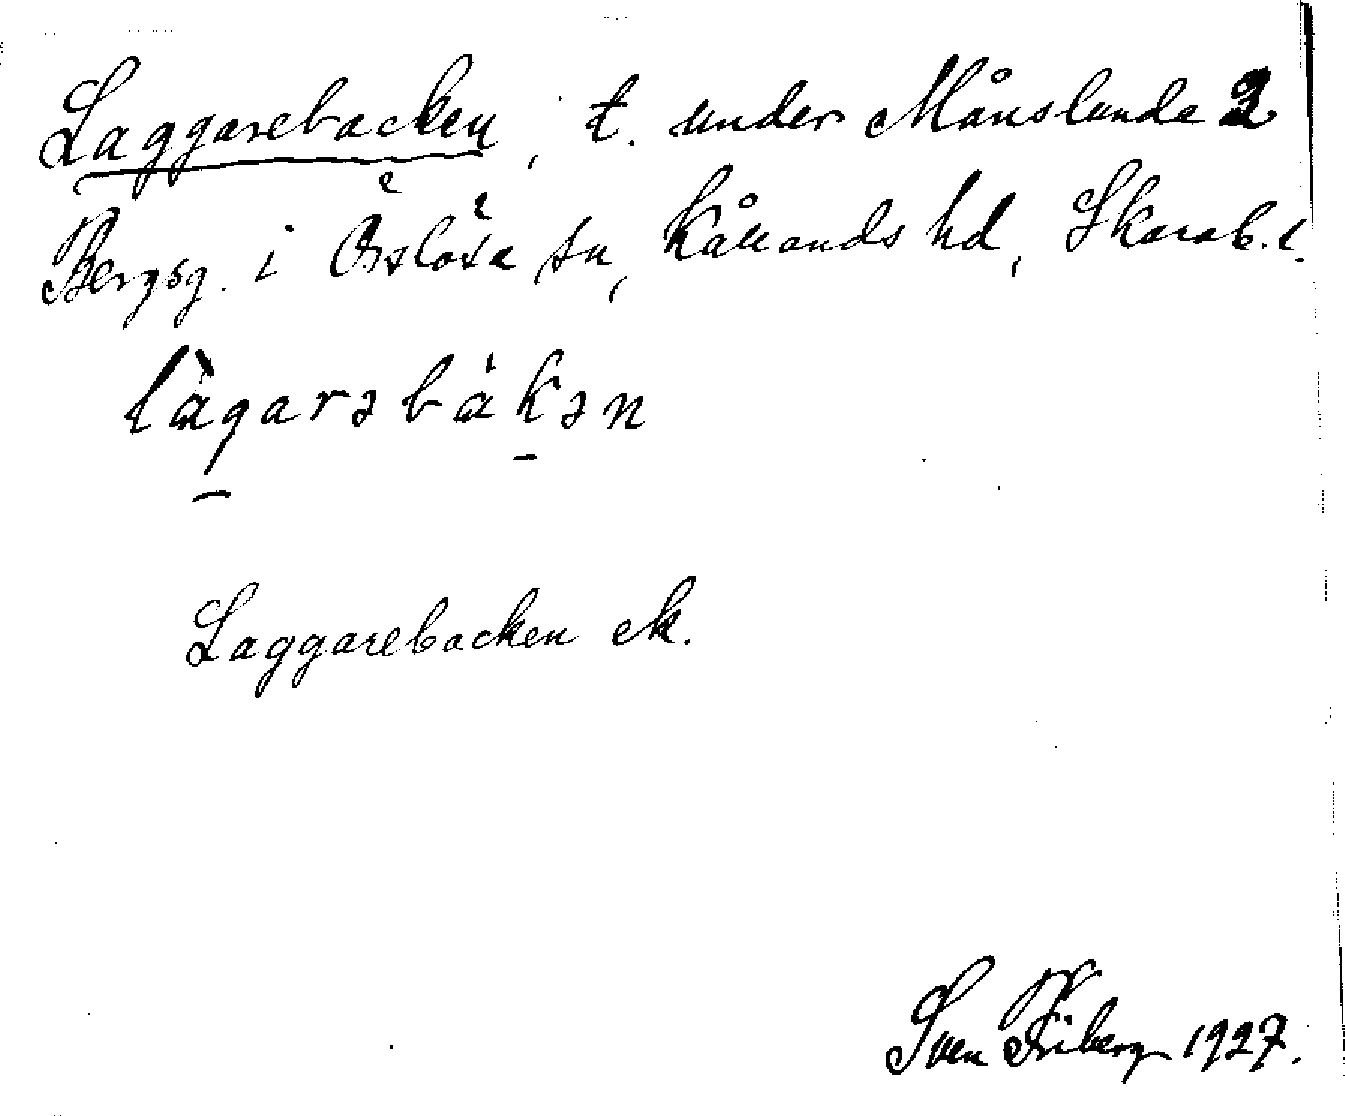 Laggarebacken, t. under Månslunda 2
Bergsg. i Örslösa sn, Kållands hd, Skarab. l.
làgarəbákən
Laggarebacken ek.
Sven Friberg 1927.